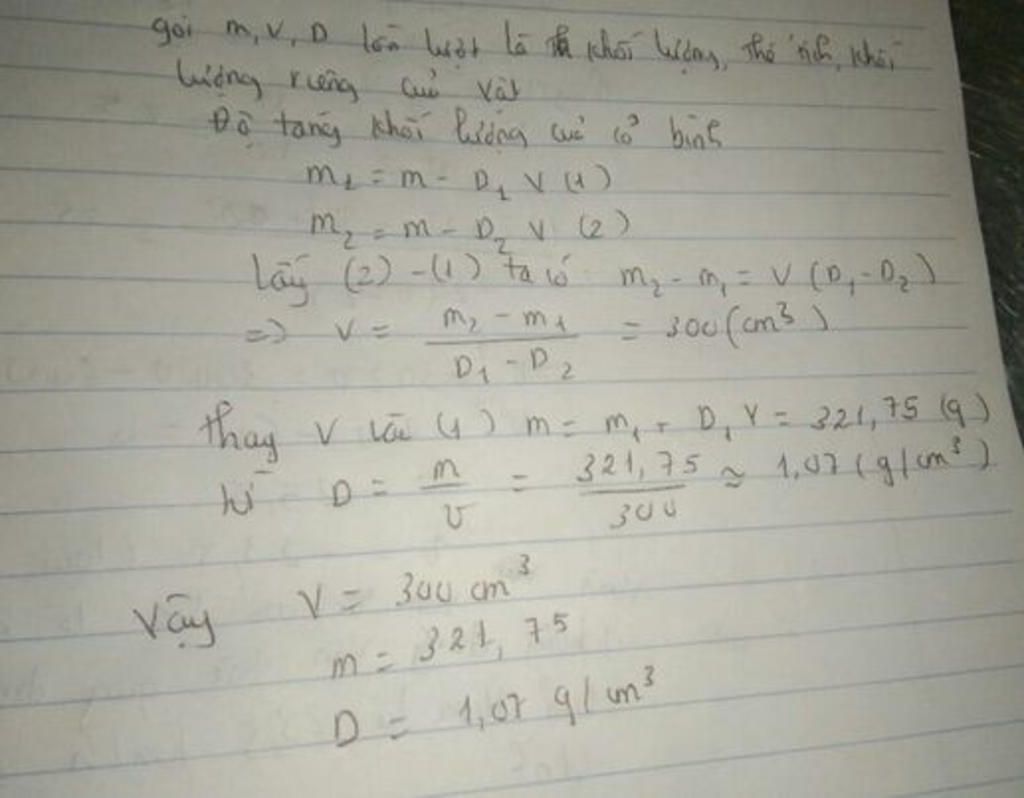 gọi m, V, D lần lượt là khối lượng, thể tích, khối
lượng riêng của vật
Độ tăng khối lượng của cả bình
m₁ = m - D₁ V (1)
m₂ = m - D₂ V (2)
lấy (2) - (1) ta có m₂ - m₁ = V (D₁ - D₂)
=> V = \frac{m₂ - m₁}{D₁ - D₂} = 300 (cm³)
thay V vào (1) m = m₁ + D₁ V = 321,75 (g)
từ D = \frac{m}{V} = \frac{321,75}{300} ≈ 1,07 (g/cm³)
Vậy V = 300 cm³
m = 321,75
D = 1,07 g/cm³